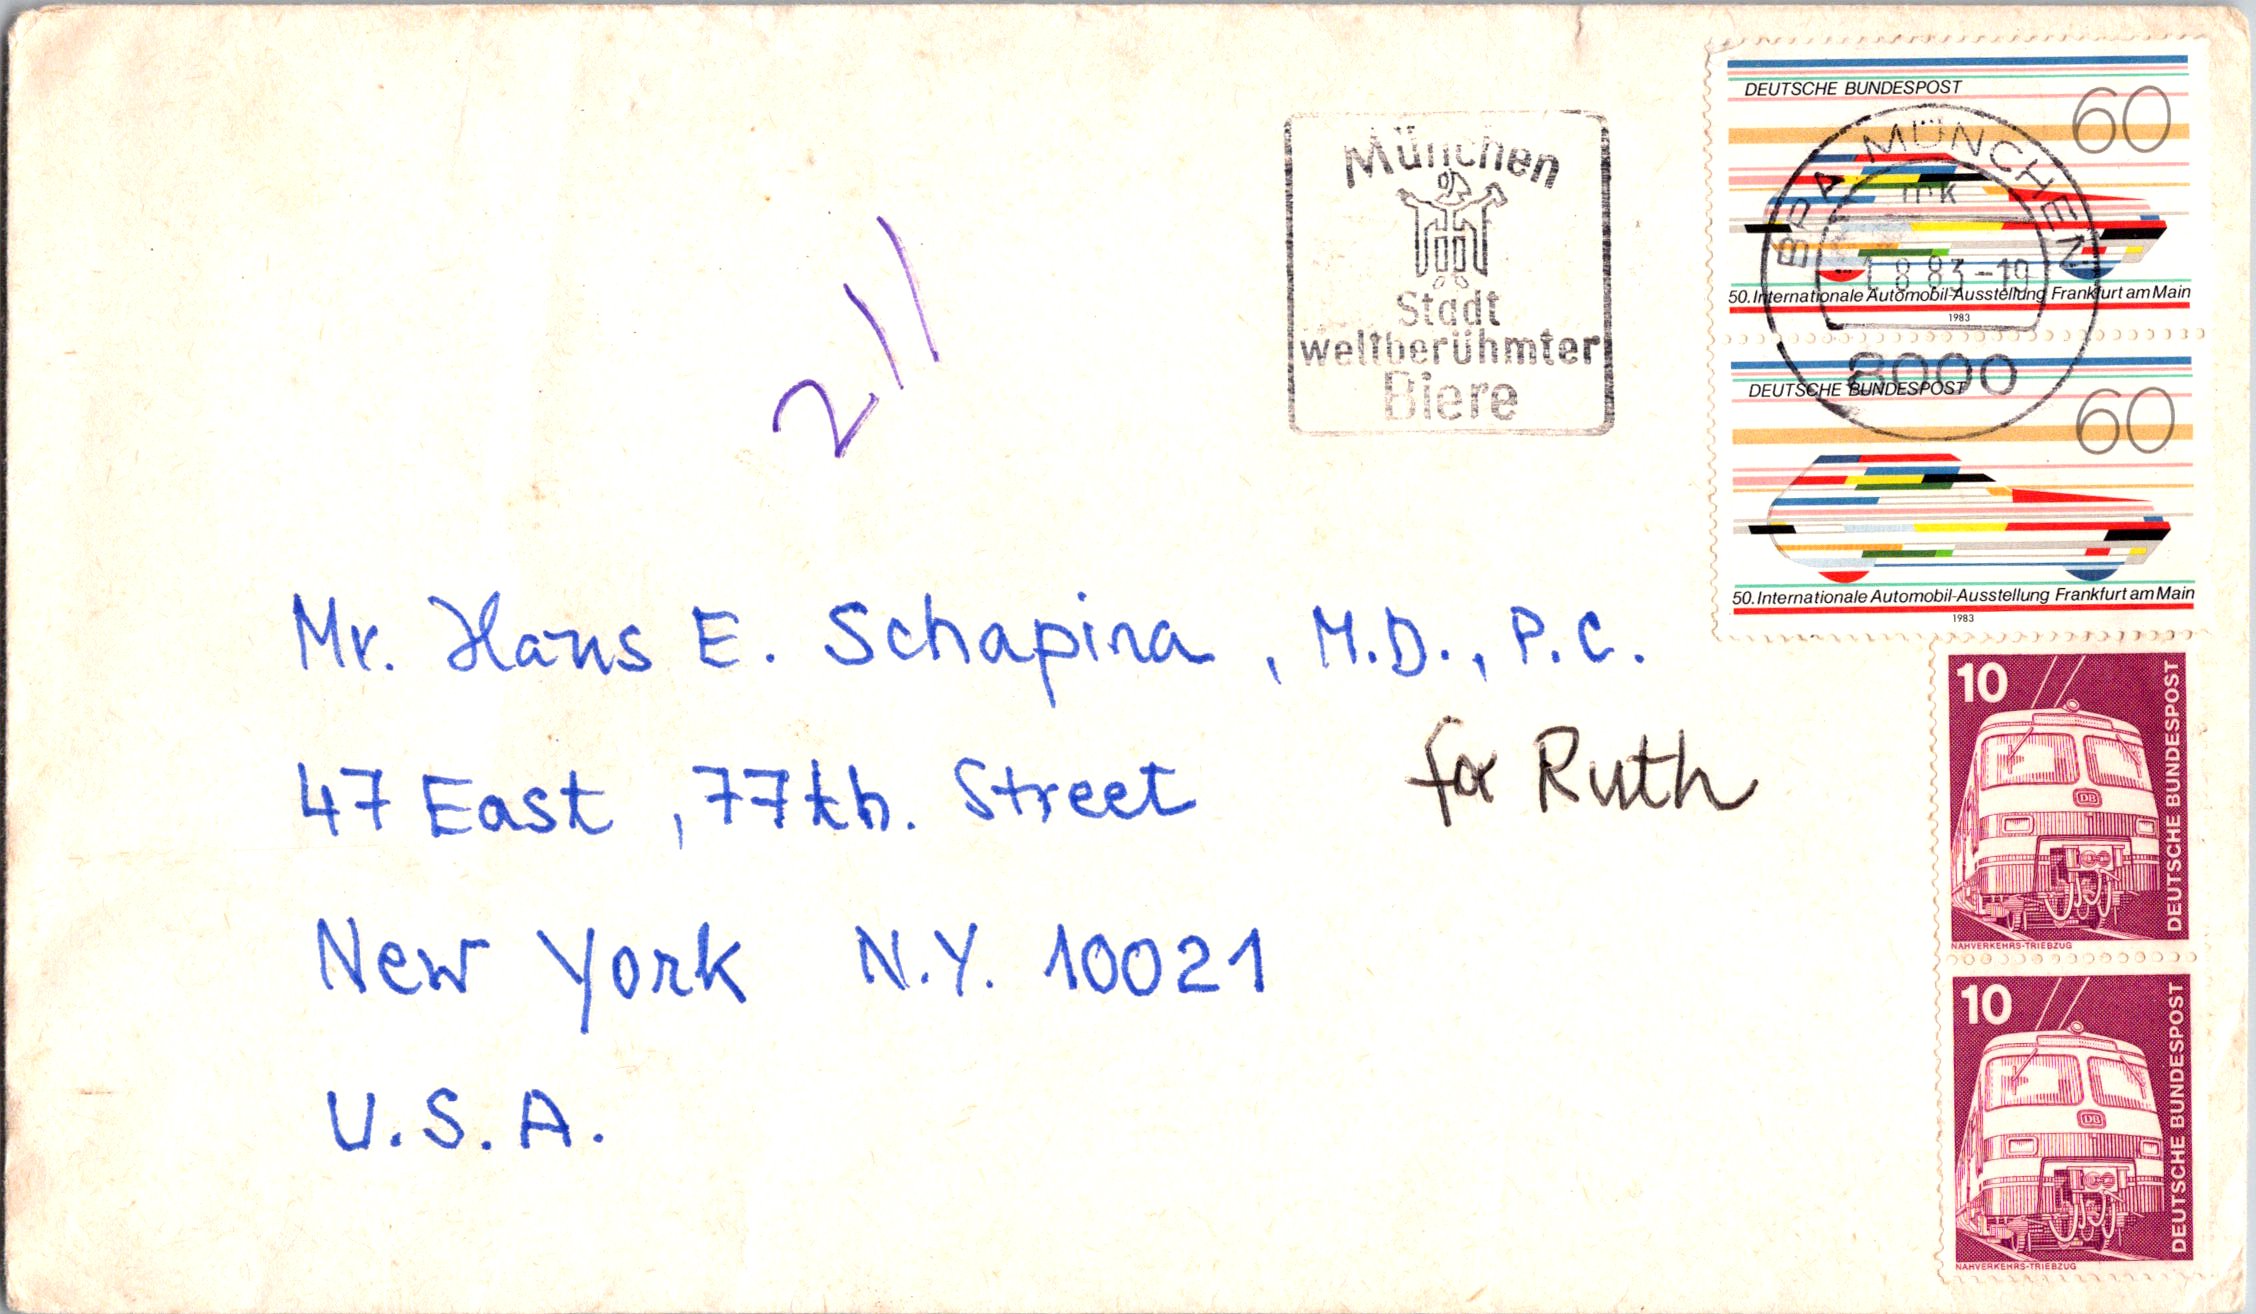 München
Stadt
weltberühmter
Biere
BPA MÜNCHEN
mk
1.8.83-19
8000
DEUTSCHE BUNDESPOST
60
50. Internationale Automobil-Ausstellung Frankfurt am Main
1983
DEUTSCHE BUNDESPOST
60
50. Internationale Automobil-Ausstellung Frankfurt am Main
1983
211
Mr. Hans E. Schapira, M.D., P.C.
47 East, 77th. Street
for Ruth
New York N.Y. 10021
U.S.A.
10
DEUTSCHE BUNDESPOST
DB
NAHVERKEHRS-TRIEBZUG
10
DEUTSCHE BUNDESPOST
DB
NAHVERKEHRS-TRIEBZUG